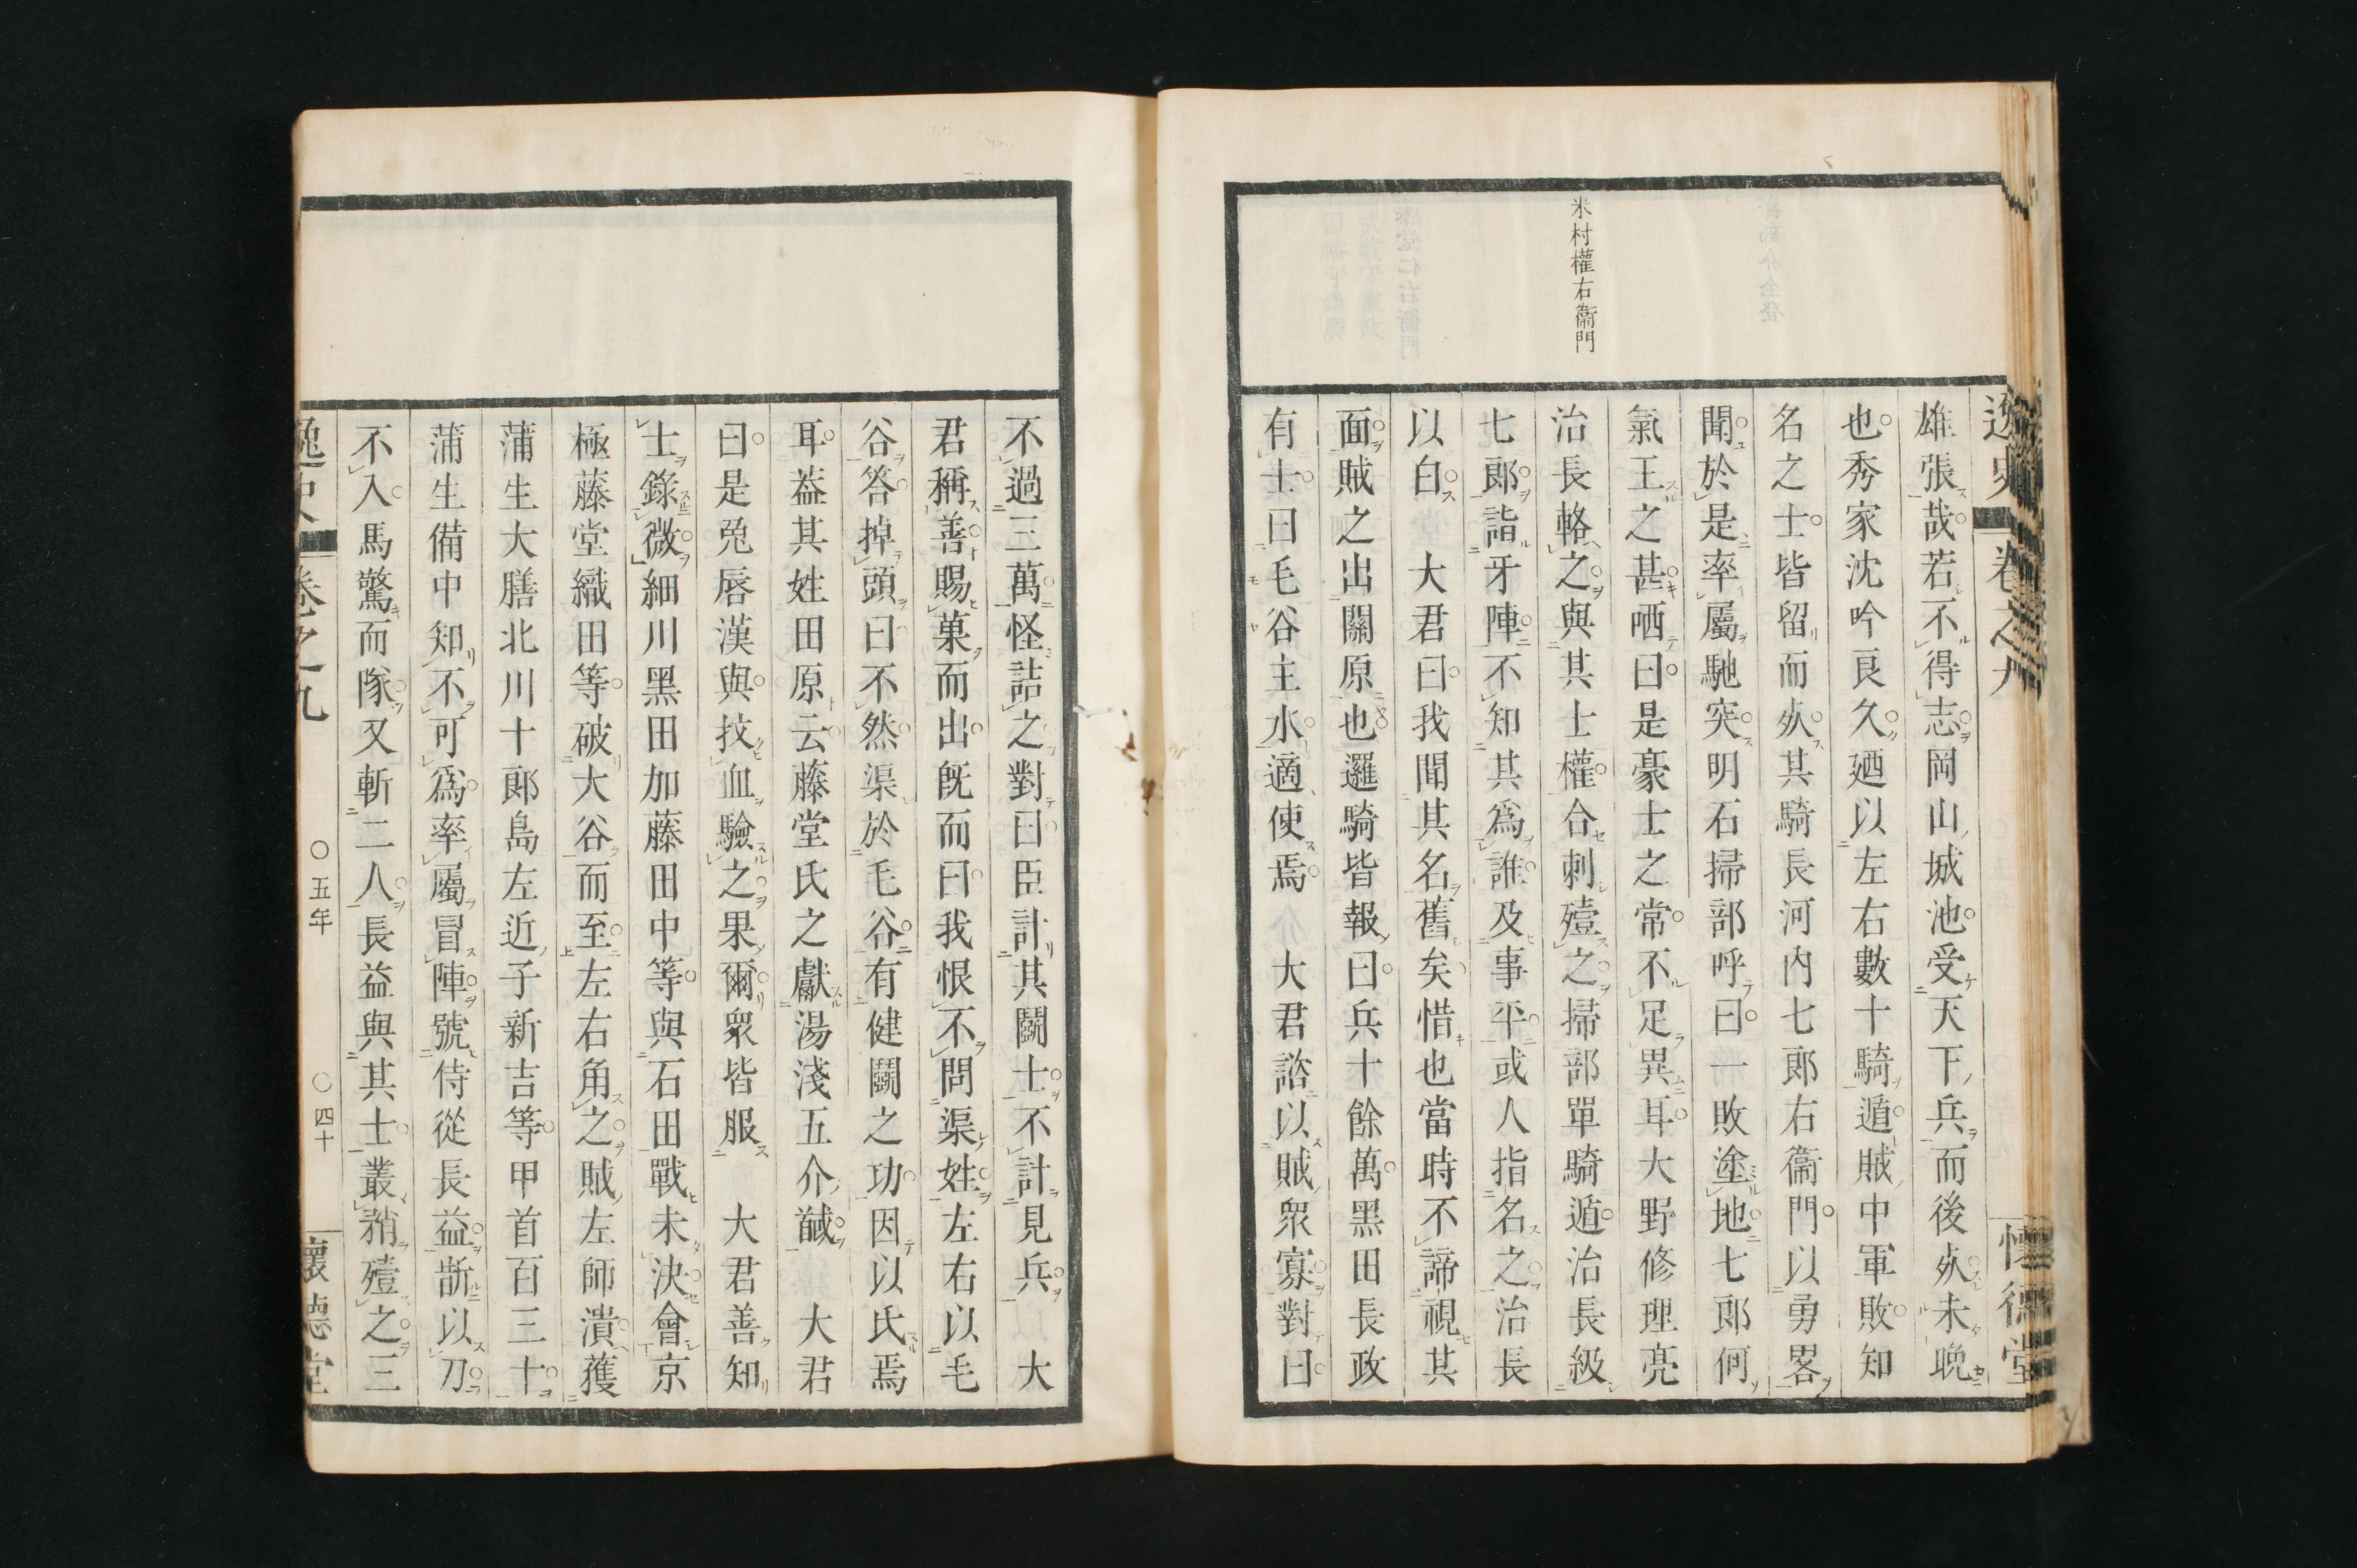 米村權右衞門
逸史 卷之九 懷德堂
雄張哉若不得志岡山城池受天下兵而後㱙未晚
也秀家沈吟良久廼以左右數十騎遁賊中軍敗知
名之士皆留而㱙其騎長河内七郎右衞門以勇畧
聞於是率屬馳突明石掃部呼曰一敗塗地七郎何
氣王之甚哂曰是豪士之常不足異耳大野修理亮
治長輅之與其士權合刺殪之掃部單騎遁治長級
七郎詣牙陣不知其爲誰及事平或人指名之治長
以白 大君曰我聞其名舊矣惜也當時不諦視其
面賊之出關原也邏騎皆報曰兵十餘萬黑田長政
有士曰毛谷主水適使焉 大君諮以賊衆寡對曰
不過三萬怪詰之對曰臣計其鬭士不計見兵 大
君稱善賜菓而出既而曰我恨不問渠姓左右以毛
谷答掉頭曰不然渠於毛谷有健鬭之功因以氏焉
耳葢其姓田原云藤堂氏之獻湯淺五介馘 大君
曰是兎唇漢與抆血驗之果爾衆皆服 大君善知
士錄微細川黑田加藤田中等與石田戰未決會京
極藤堂織田等破大谷而至左右角之賊左師潰獲
蒲生大膳北川十郎島左近子新吉等甲首百三十
蒲生備中知不可爲率屬冒陣號侍從長益斮以刀
不入馬驚而隊又斬二人長益與其士叢矟殪之三
逸史 卷之九 〇五年 〇四十 懷德堂